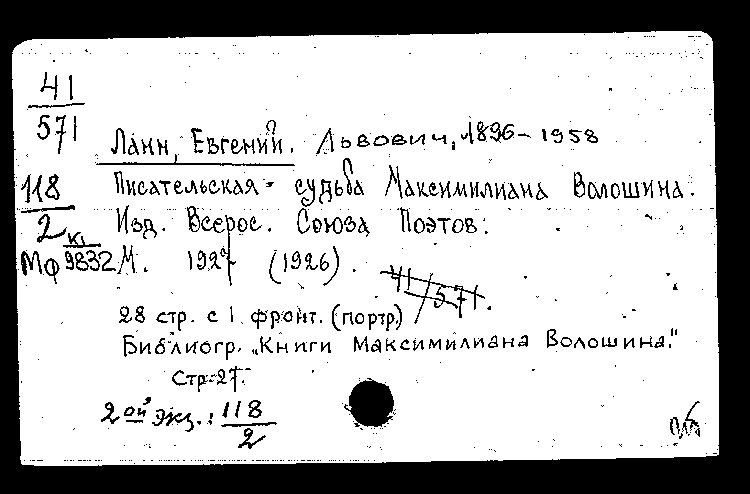 41
571
Ланн, Евгений. Львович, 1896-1958
118
2
Писательская судьба Максимилиана Волошина.
Изд. Всерос. Союза Поэтов.
К1
Мф 9832
М. 1927 (1926).
41/571.
28 стр. с 1 фронт. (портр.)
Библиогр. „Книги Максимилиана Волошина."
Стр. 27.
2ой экз.: 118
2